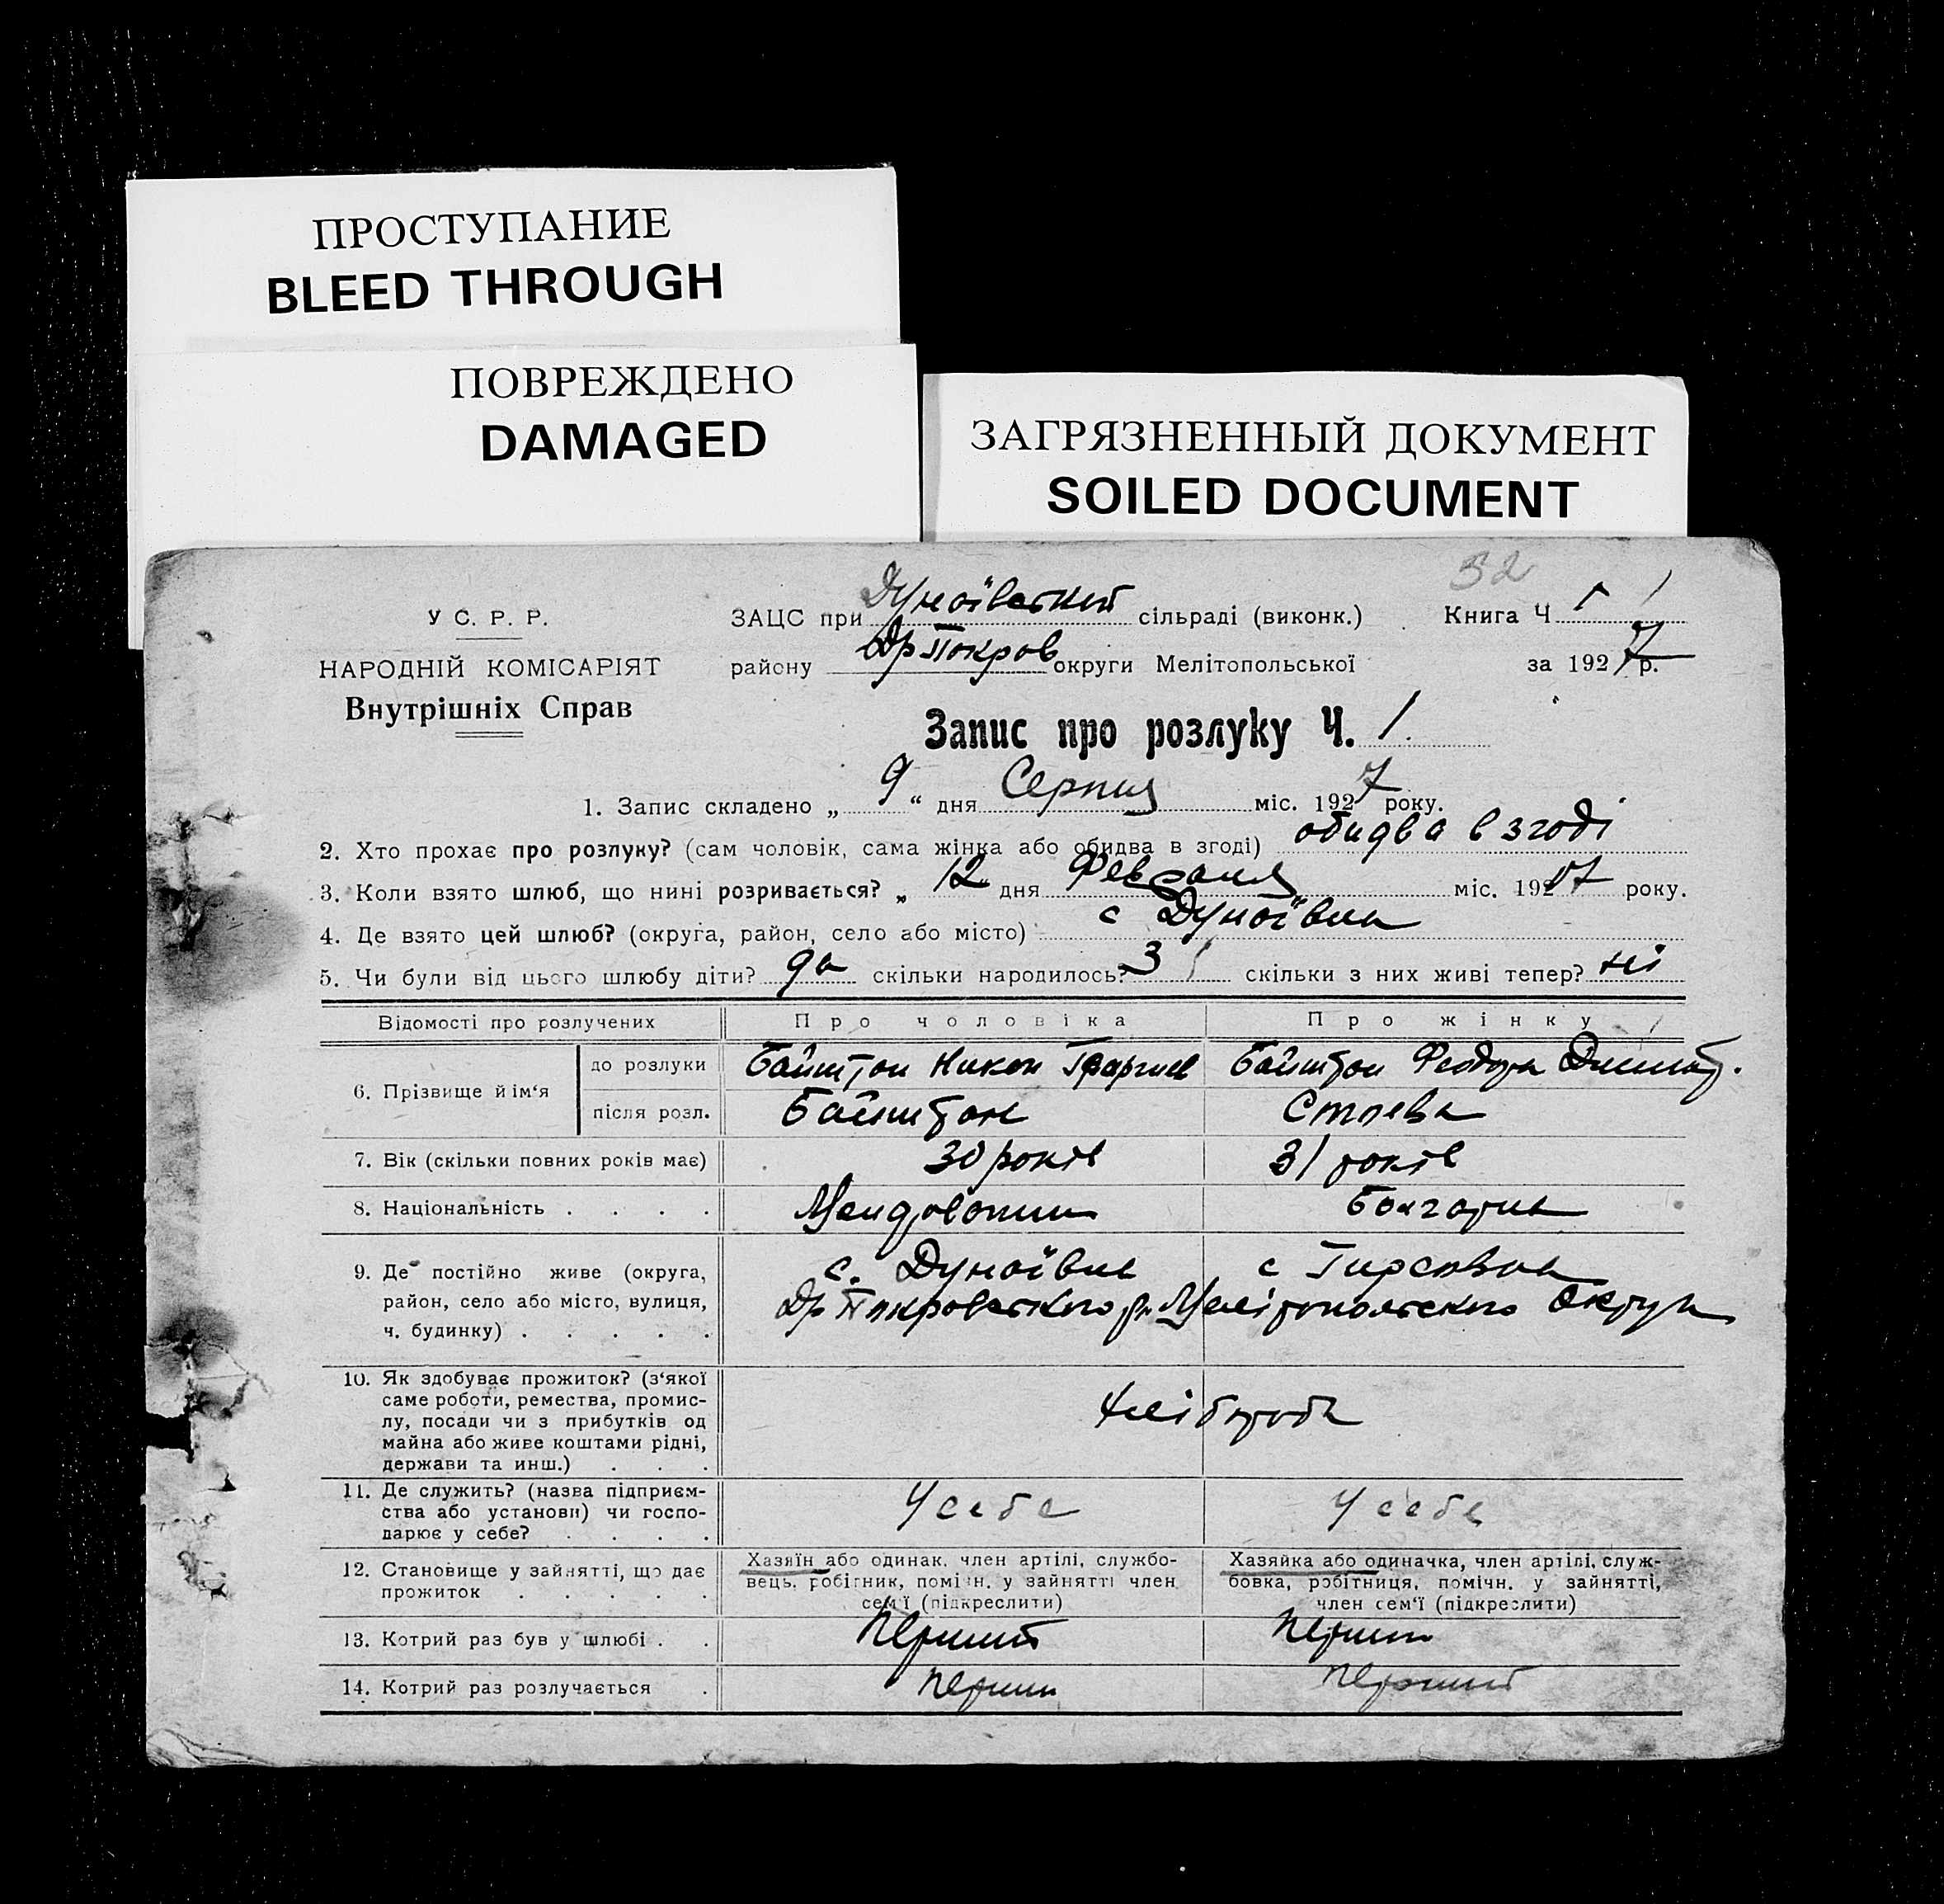 ПРОСТУПАНИЕ
BLEED THROUGH
ПОВРЕЖДЕНО
DAMAGED
ЗАГРЯЗНЕННЫЙ ДОКУМЕНТ
SOILED DOCUMENT
32
У С. Р. Р.
ЗАЦС при Дунаївській сільраді (виконк.)
Книга Ч 1
НАРОДНІЙ КОМІСАРІЯТ
району Др Покров округи Мелітопольської
за 1927 р.
Внутрішніх Справ
Запис про розлуку Ч. 1.
1. Запис складено „ 9 “ дня Серпня міс. 1927 року.
2. Хто прохає про розлуку? (сам чоловік, сама жінка або обидва в згоді) обидва в згоді
3. Коли взято шлюб, що нині розривається? „ 12 дня Февраля міс. 1917 року.
4. Де взято цей шлюб? (округа, район, село або місто) с Дунаївка
5. Чи були від цього шлюбу діти? да скільки народилось? 3 скільки з них живі тепер? ні
Відомості про розлучених
Про чоловіка
Про жінку
6. Прізвище й ім‘я
до розлуки
Никон
після розл.
Стоева
7. Вік (скільки повних років має)
30 років
31 років
8. Національність . . . .
Болгарка
9. Де постійно живе (округа, район, село або місто, вулиця, ч. будинку) . . . . .
с. Дунаївка
с Гирсовка
Др Покровського рн. Мелітопольского Округа
10. Як здобуває прожиток? (з‘якої саме роботи, ремества, промислу, посади чи з прибутків од майна або живе коштами рідні, держави та инш.) . . .
хлібороби
11. Де служить? (назва підприємства або установи) чи господарює у себе? . . . .
У себе
У себе
12. Становище у зайнятті, що дає прожиток . . . . .
Хазяїн або одинак, член артілі, службовець, робітник, помічн. у зайнятті член сем‘ї (підкреслити)
Хазяйка або одиначка, член артілі, службовка, робітниця, помічн. у зайнятті, член сем‘ї (підкреслити)
13. Котрий раз був у шлюбі . .
Перший
Перший
14. Котрий раз розлучається .
Перший
Перший